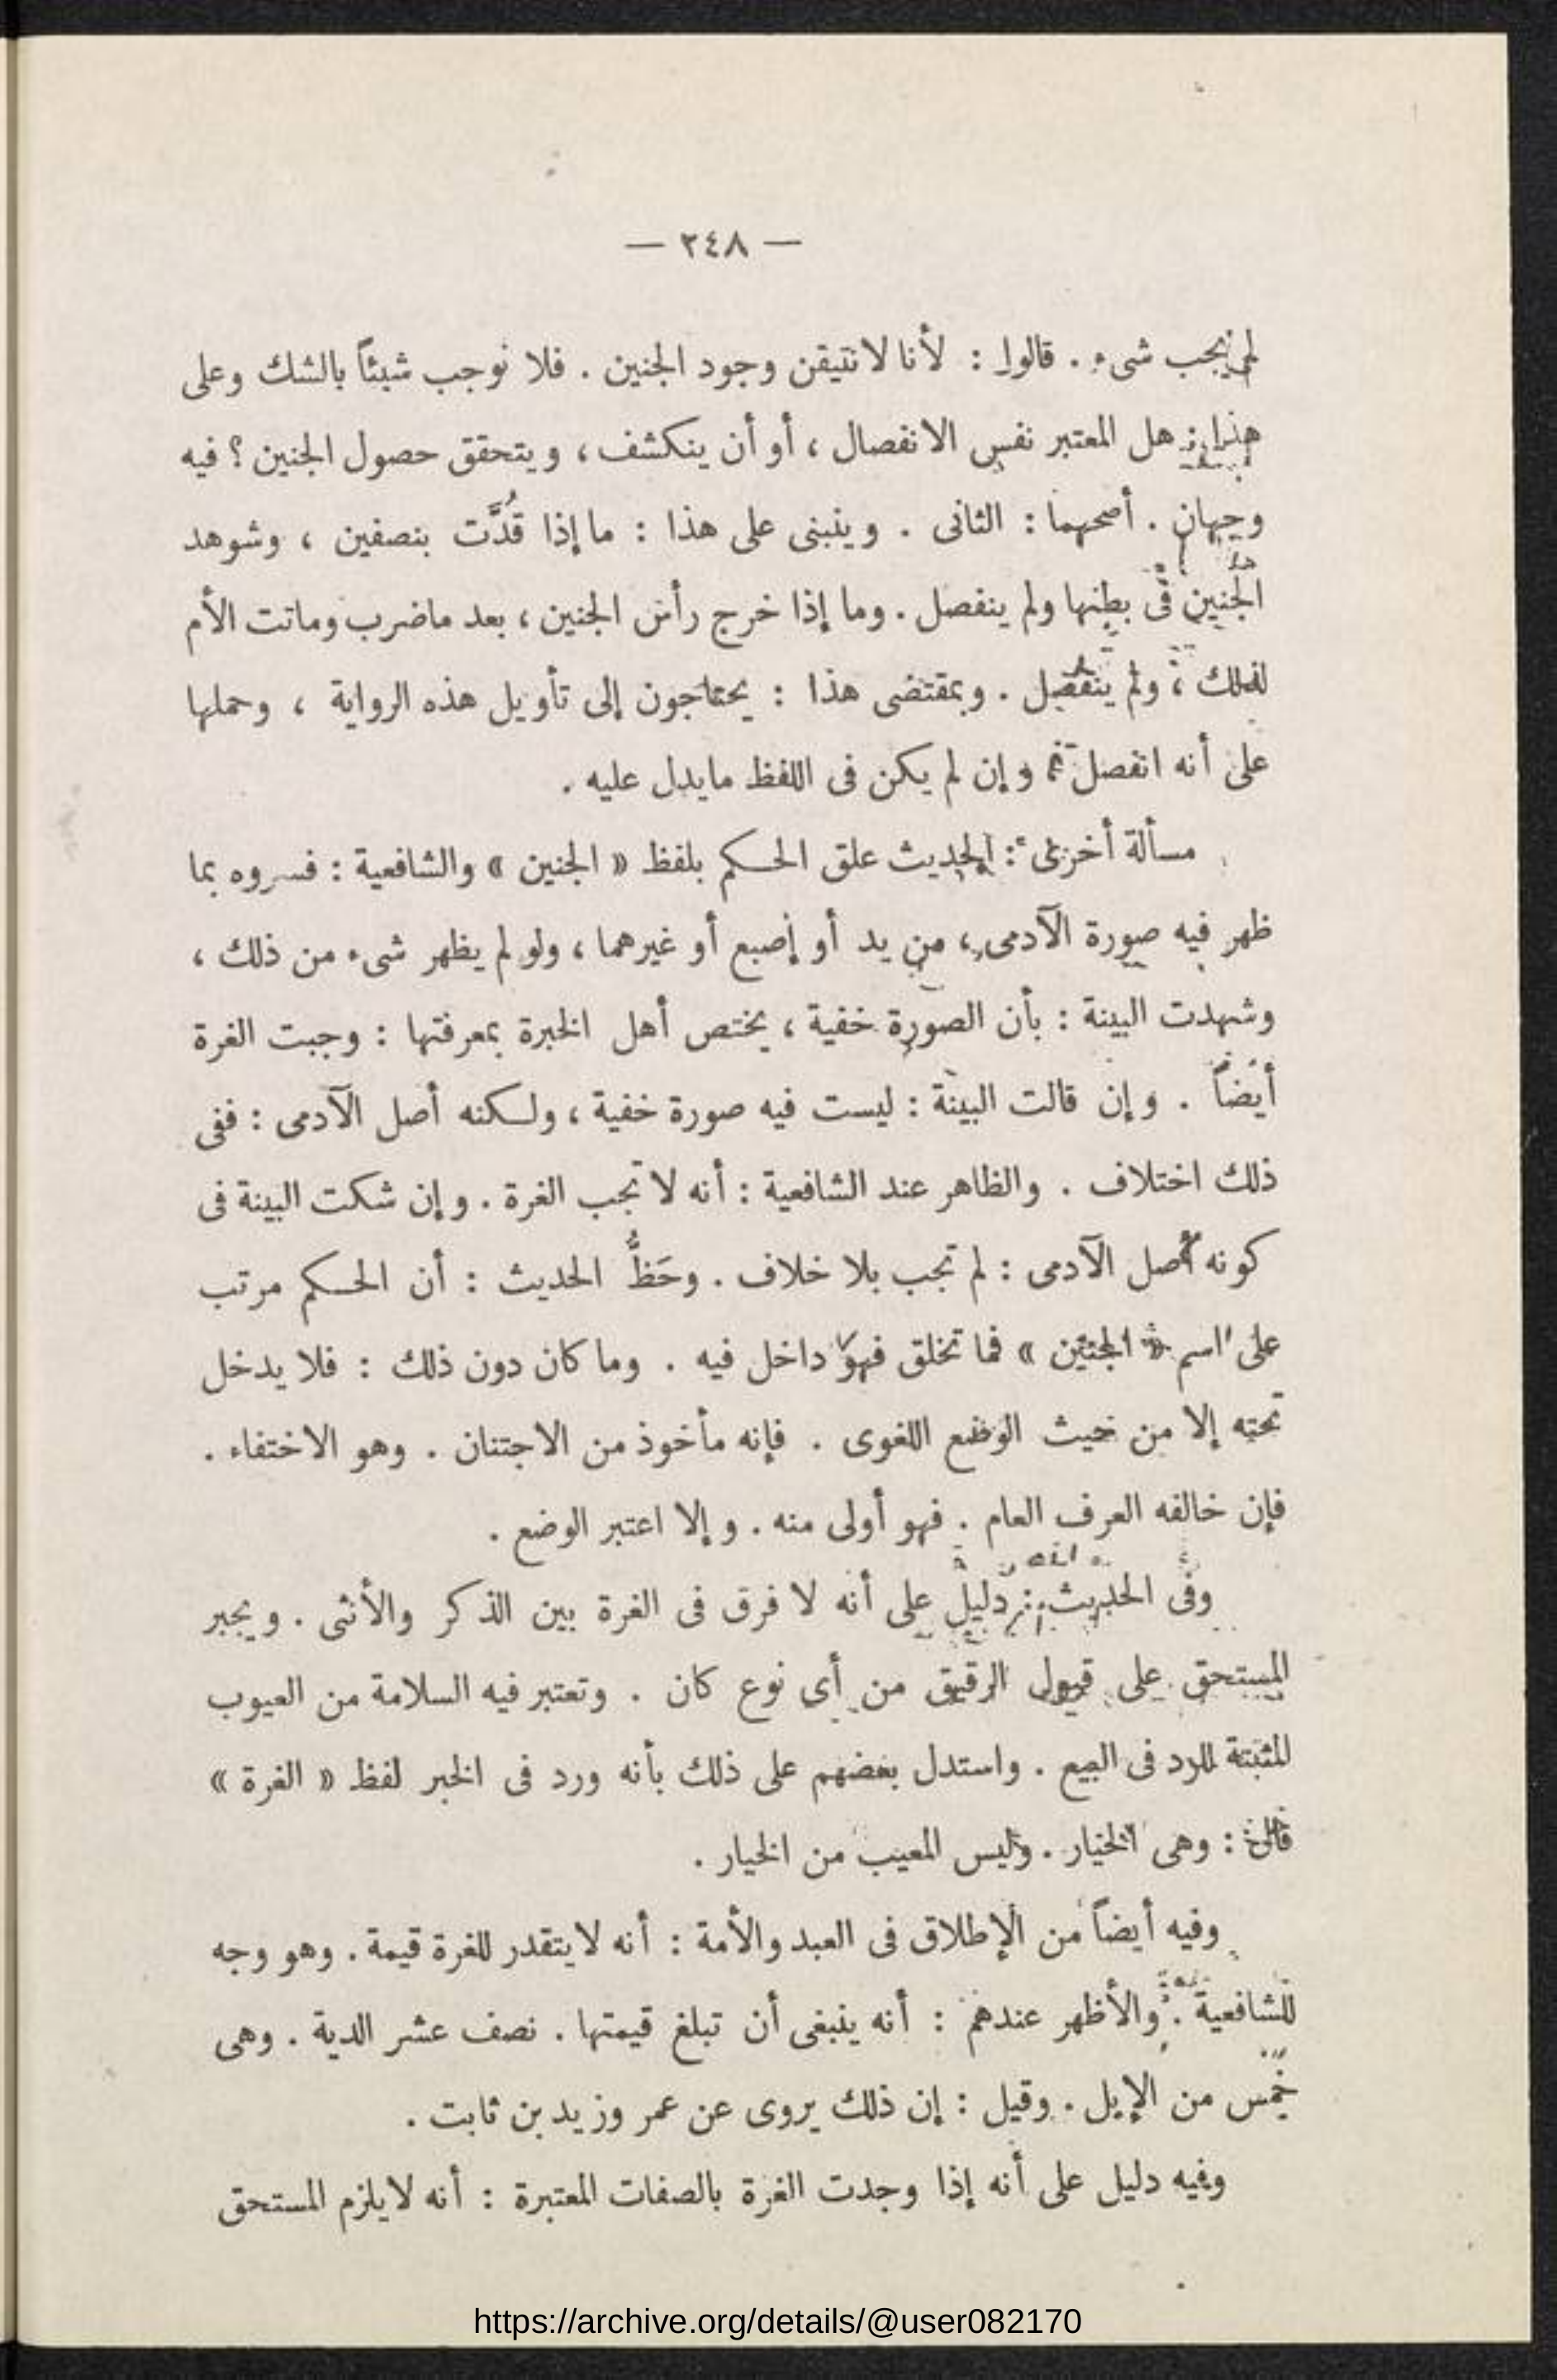 — ٢٤٨ —
لم يجب شىء . قالوا : لأنا لا نتيقن وجود الجنين . فلا نوجب شيئاً بالشك وعلى
هذا : هل المعتبر نفس الانفصال ، أو أن ينكشف ، ويتحقق حصول الجنين ؟ فيه
وجهان . أصحهما : الثانى . وينبنى على هذا : ما إذا قُدَّت بنصفين ، وشوهد
الجنين فى بطنها ولم ينفصل . وما إذا خرج رأس الجنين ، بعد ماضرب وماتت الأم
لذلك ، ولم ينفصل . وبمقتضى هذا : يحتاجون إلى تأويل هذه الرواية ، وحملها
على أنه انفصل ، وإن لم يكن فى اللفظ مايدل عليه .
مسألة أخرى : الحديث علق الحكم بلفظ « الجنين » والشافعية : فسروه بما
ظهر فيه صورة الآدمى ، من يد أو إصبع أو غيرهما ، ولو لم يظهر شىء من ذلك ،
وشهدت البينة : بأن الصورة خفية ، يختص أهل الخبرة بمعرفتها : وجبت الغرة
أيضاً . وإن قالت البينة : ليست فيه صورة خفية ، ولكنه أصل الآدمى : ففى
ذلك اختلاف . والظاهر عند الشافعية : أنه لا تجب الغرة . وإن شكت البينة فى
كونه أصل الآدمى : لم تجب بلا خلاف . وحَظُّ الحديث : أن الحكم مرتب
على اسم « الجنين » فما تخلق فهو داخل فيه . وما كان دون ذلك : فلا يدخل
تحته إلا من حيث الوضع اللغوى . فإنه مأخوذ من الاجتنان . وهو الاختفاء .
فإن خالفه العرف العام . فهو أولى منه . وإلا اعتبر الوضع .
وفى الحديث : دليل على أنه لا فرق فى الغرة بين الذكر والأنثى . ويجبر
المستحق على قبول الرقيق من أى نوع كان . وتعتبر فيه السلامة من العيوب
المثبتة للرد فى البيع . واستدل بعضهم على ذلك بأنه ورد فى الخبر لفظ « الغرة »
قال : وهى الخيار . وليس المعيب من الخيار .
وفيه أيضاً من الإطلاق فى العبد والأمة : أنه لايتقدر للغرة قيمة . وهو وجه
للشافعية . والأظهر عندهم : أنه ينبغى أن تبلغ قيمتها . نصف عشر الدية . وهى
خمس من الإبل . وقيل : إن ذلك يروى عن عمر وزيد بن ثابت .
وفيه دليل على أنه إذا وجدت الغرة بالصفات المعتبرة : أنه لايلزم المستحق
https://archive.org/details/@user082170